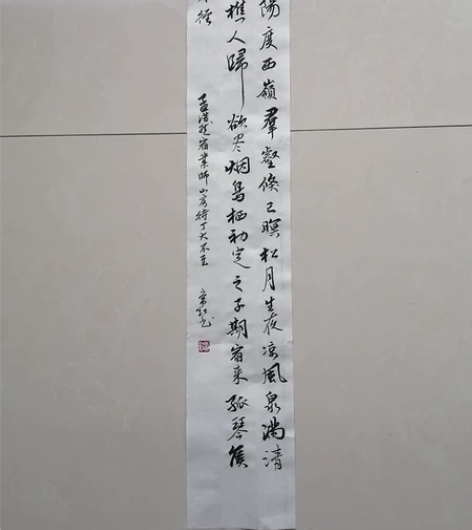 陽度西嶺羣壑倏已暝松月生夜凉風泉滿清
樵人歸欲尽烟鳥栖初定之子期宿来孤琴候
徑
孟浩然宿業師山房待丁大不至
书